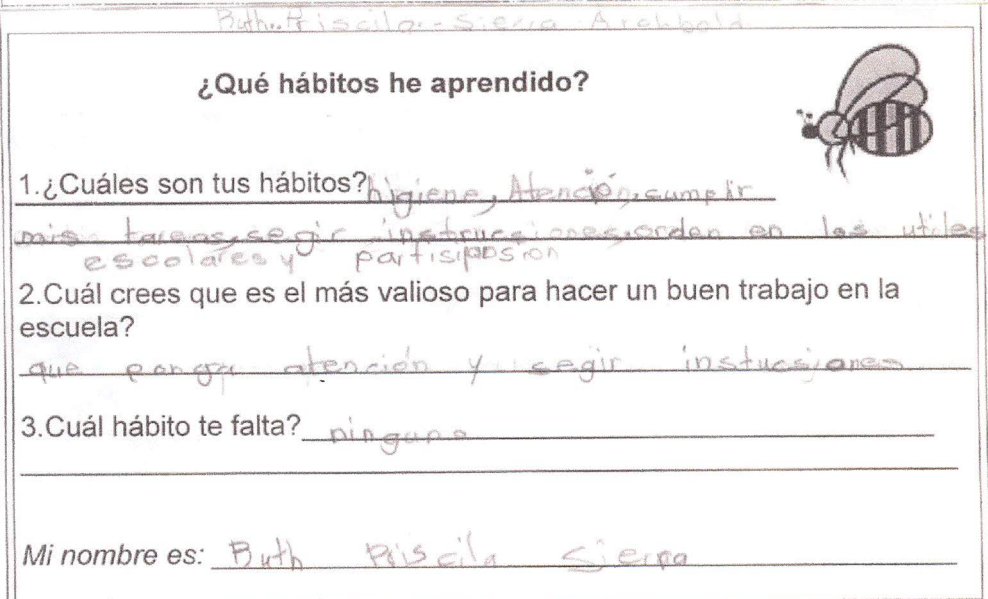 Ruth Priscila Sierra Archbold
¿Qué hábitos he aprendido?
1.¿Cuáles son tus hábitos? higiene, Atención, cumplir
mis tareas, segir instrucciones, orden en los utiles
escolares y partisipasion
2.Cuál crees que es el más valioso para hacer un buen trabajo en la
escuela?
que ponga atención y segir instucsiones
3.Cuál hábito te falta? ninguno
Mi nombre es: Ruth Priscila Sierra